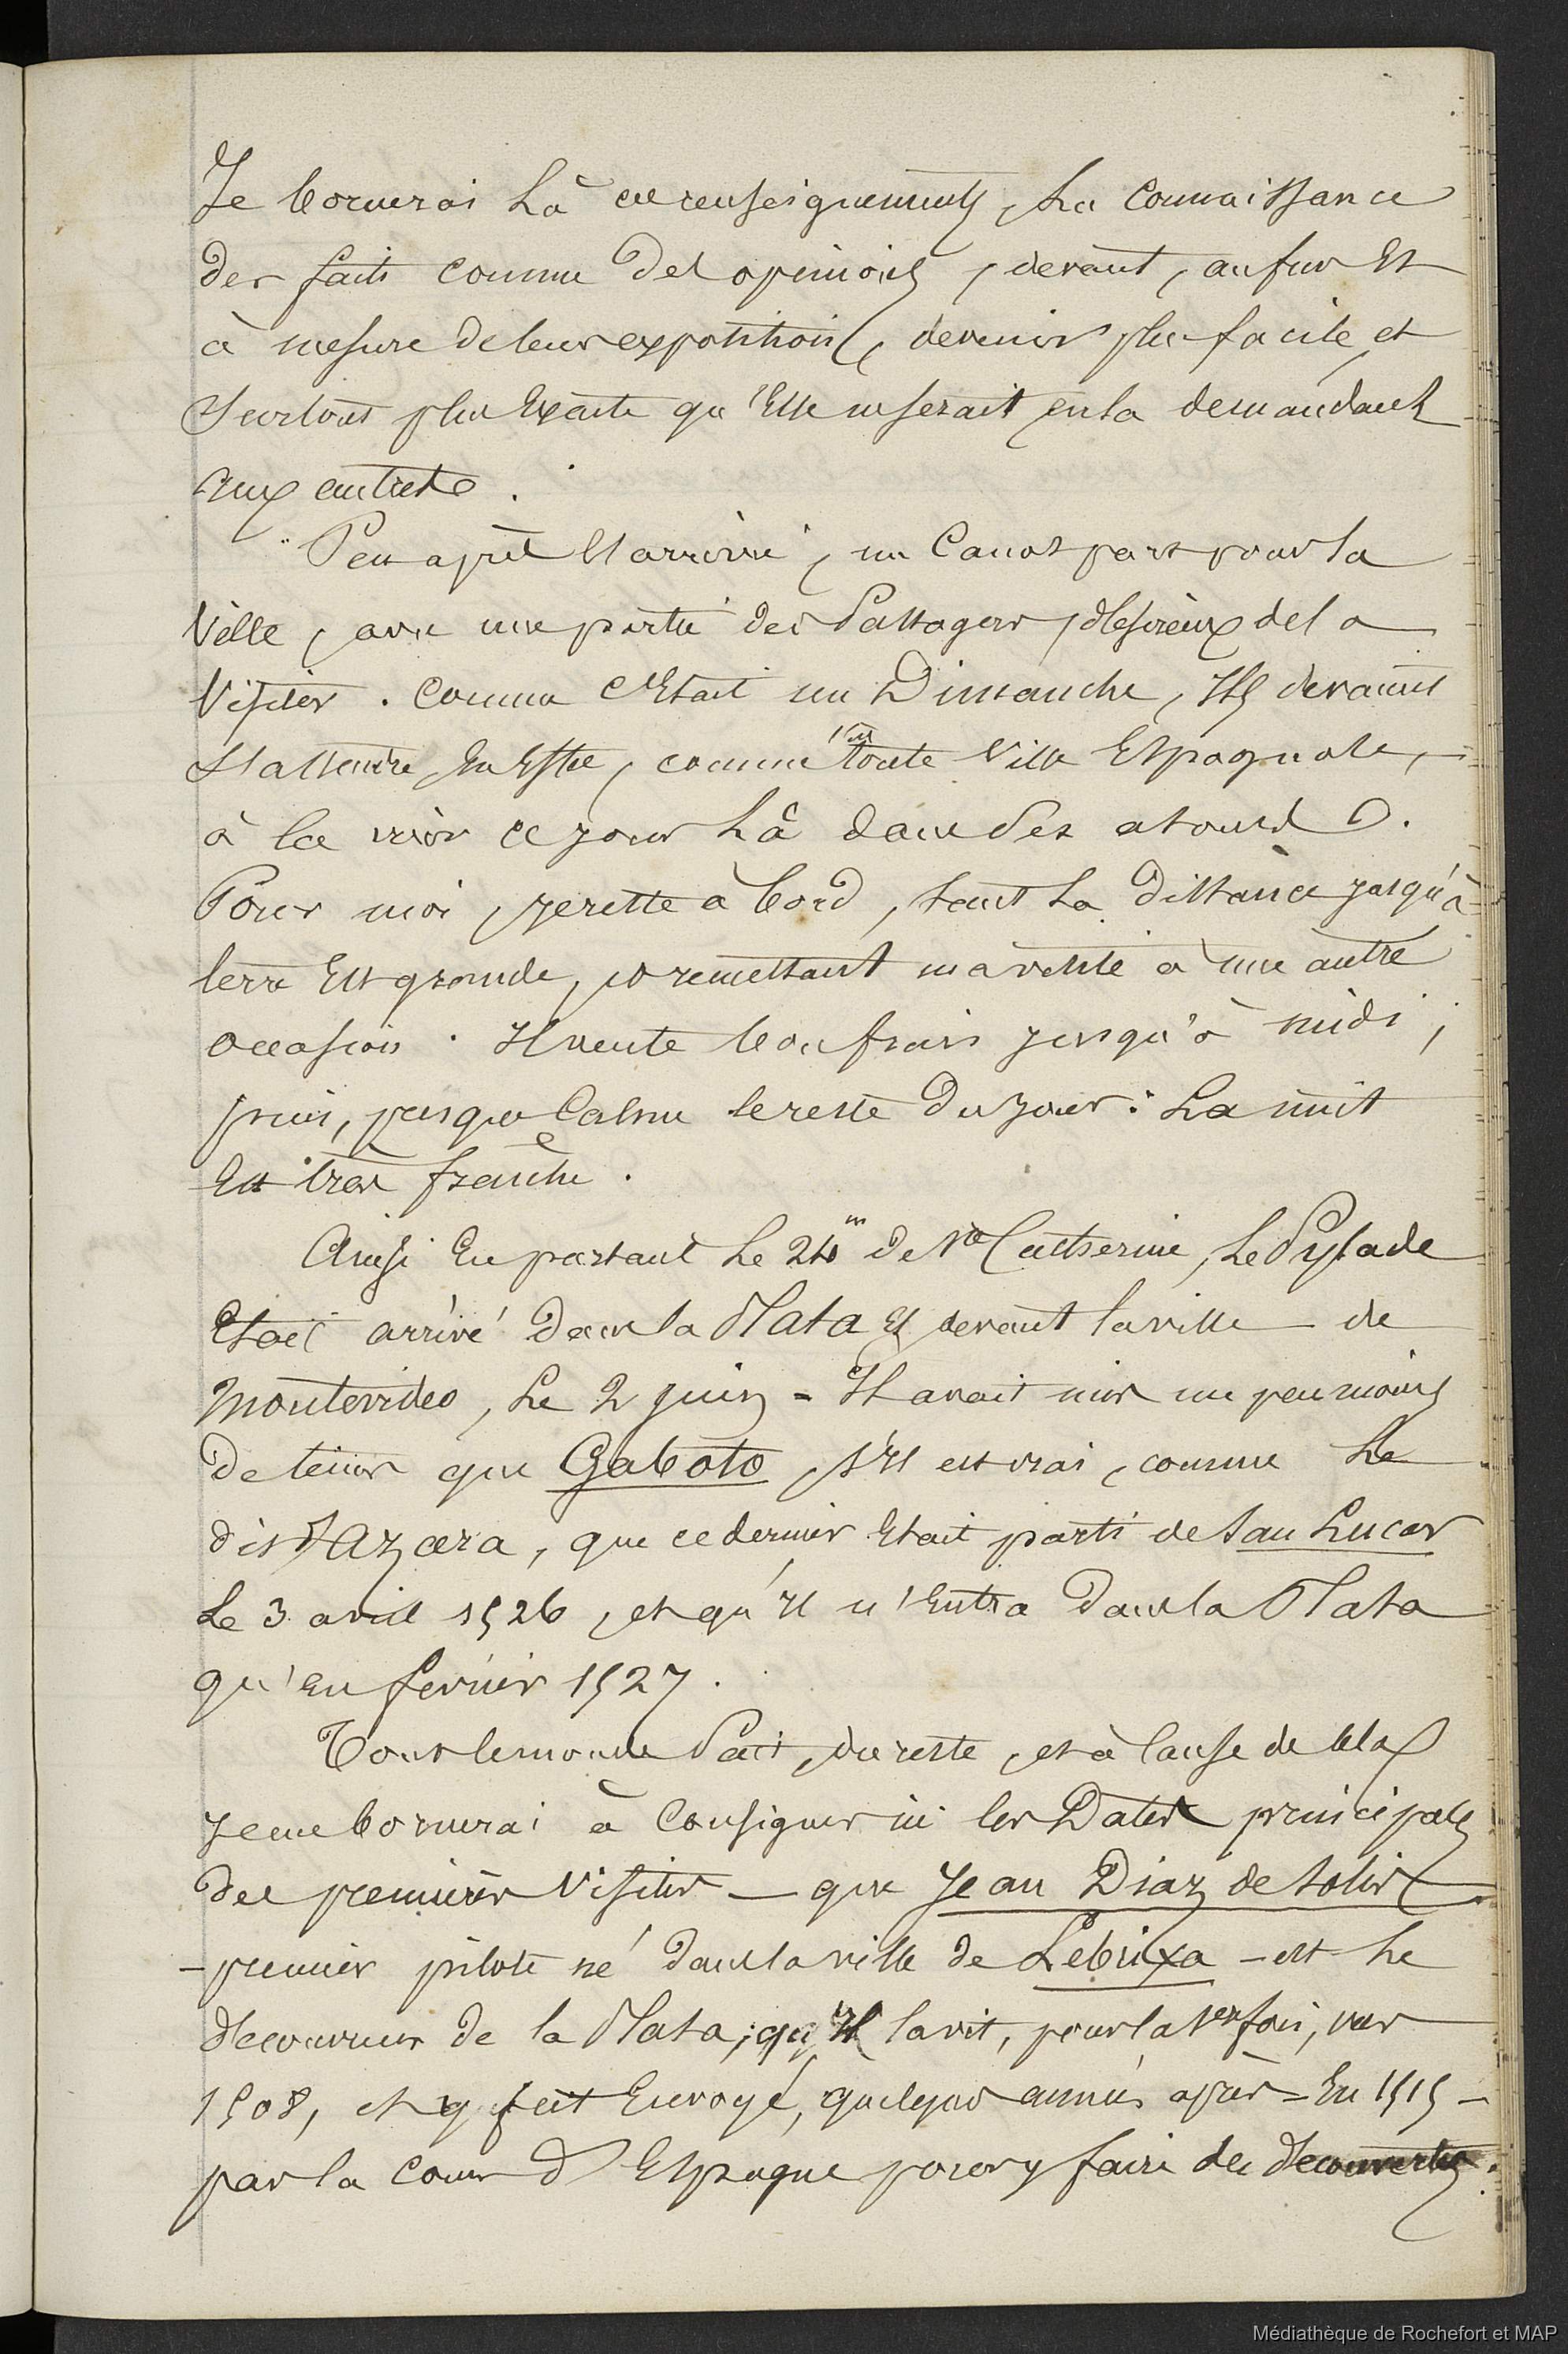 Je bornerai là ces renseignements, la connaissance
des faits comme des opinions, devant, au fur et
à mesure de leur exposition, devenir plus facile, et
surtout plus exacte qu'elle ne serait en la demandant
aux autres.
Peu après l'arrivée, un canot part pour la
ville, avec une partie des passagers, désireux de la
visiter. Comme c'était un Dimanche, ils devaient
s'attendre en effet, comme toute ville Espagnole,
à la voir ce jour là dans ses atours.
Pour moi, je reste à bord, tant la distance jusqu'à
terre est grande, et remettant ma visite à une autre
occasion. Il vente bon frais jusqu'à midi ;
puis, presque calme le reste du jour : La nuit
est très fraîche.
Ainsi en partant le 24 de Ste Catherine, le Pylade
était arrivé dans la Plata et devant la ville de
Montevideo, le 2 juin - Il avait mis un peu moins
de temps que Gaboto, s'il est vrai, comme le
dit Azara, que ce dernier était parti de San Lucar
le 3 avril 1526, et qu'il n'entra dans la Plata
qu'en février 1527.
Tout le monde sait, du reste, et à cause de cela
je me bornerai à consigner ici les Dates principales
des premières visites — que Jean Diaz de Solis
- premier pilote né dans la ville de Lebrixa - est le
découvreur de la Plata ; qu'il la vit, pour la 1ère fois, vers
1508, et y fut envoyé, quelques années après - En 1515 -
par la cour d'Espagne pour y faire des découvertes.
Médiathèque de Rochefort et MAP